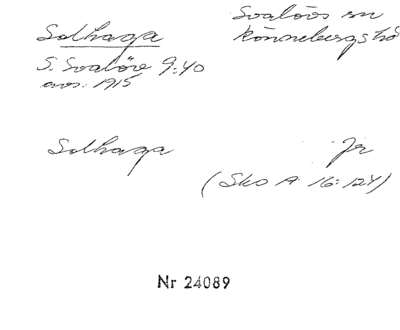 Solhaga
Svalövs sn
Rönnebergs hd
S. Svalöv 9:40
avs. 1915
Solhaga
Jr
(Sko A 16:124)
Nr 24089